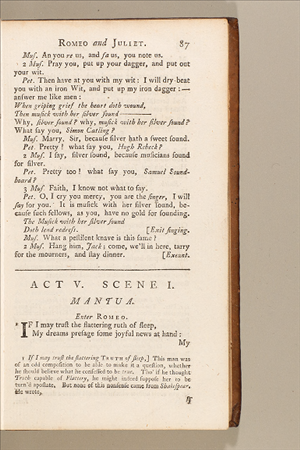 ROMEO and JULIET. 87
Mus. An you re us, and fa us, you note us.
2 Mus. Pray you, put up your dagger, and put out
your wit.
Pet. Then have at you with my wit: I will dry-beat
you with an iron Wit, and put up my iron dagger:—
answer me like men:
When griping grief the heart doth wound,
Then musick with her silver sound———
Why, silver sound? why, musick with her silver sound?
What say you, Simon Catling?
Mus. Marry, Sir, because silver hath a sweet sound.
Pet. Pretty! what say you, Hugh Rebeck?
2 Mus. I say, silver sound, because musicians sound
for silver.
Pet. Pretty too! what say you, Samuel Sound-
board?
3 Mus. Faith, I know not what to say.
Pet. O, I cry you mercy, you are the singer, I will
say for you. It is musick with her silver sound, be-
cause such fellows, as you, have no gold for sounding.
The Musick with her silver sound
Doth lend redress. [Exit singing.
Mus. What a pestilent knave is this same?
2 Mus. Hang him, Jack; come, we'll in here, tarry
for the mourners, and stay dinner. [Exeunt.
ACT V. SCENE I.
MANTUA.
Enter ROMEO.
1 IF I may trust the flattering ruth of sleep,
My dreams presage some joyful news at hand:
My
1 If I may trust the flattering TRUTH of sleep,] This man was
of an odd composition to be able to make it a question, whether
he should believe what he confessed to be true. Tho' if he thought
Truth capable of Flattery, he might indeed suppose her to be
turn'd apostate. But none of this nonsense came from Shakespear.
He wrote,
If